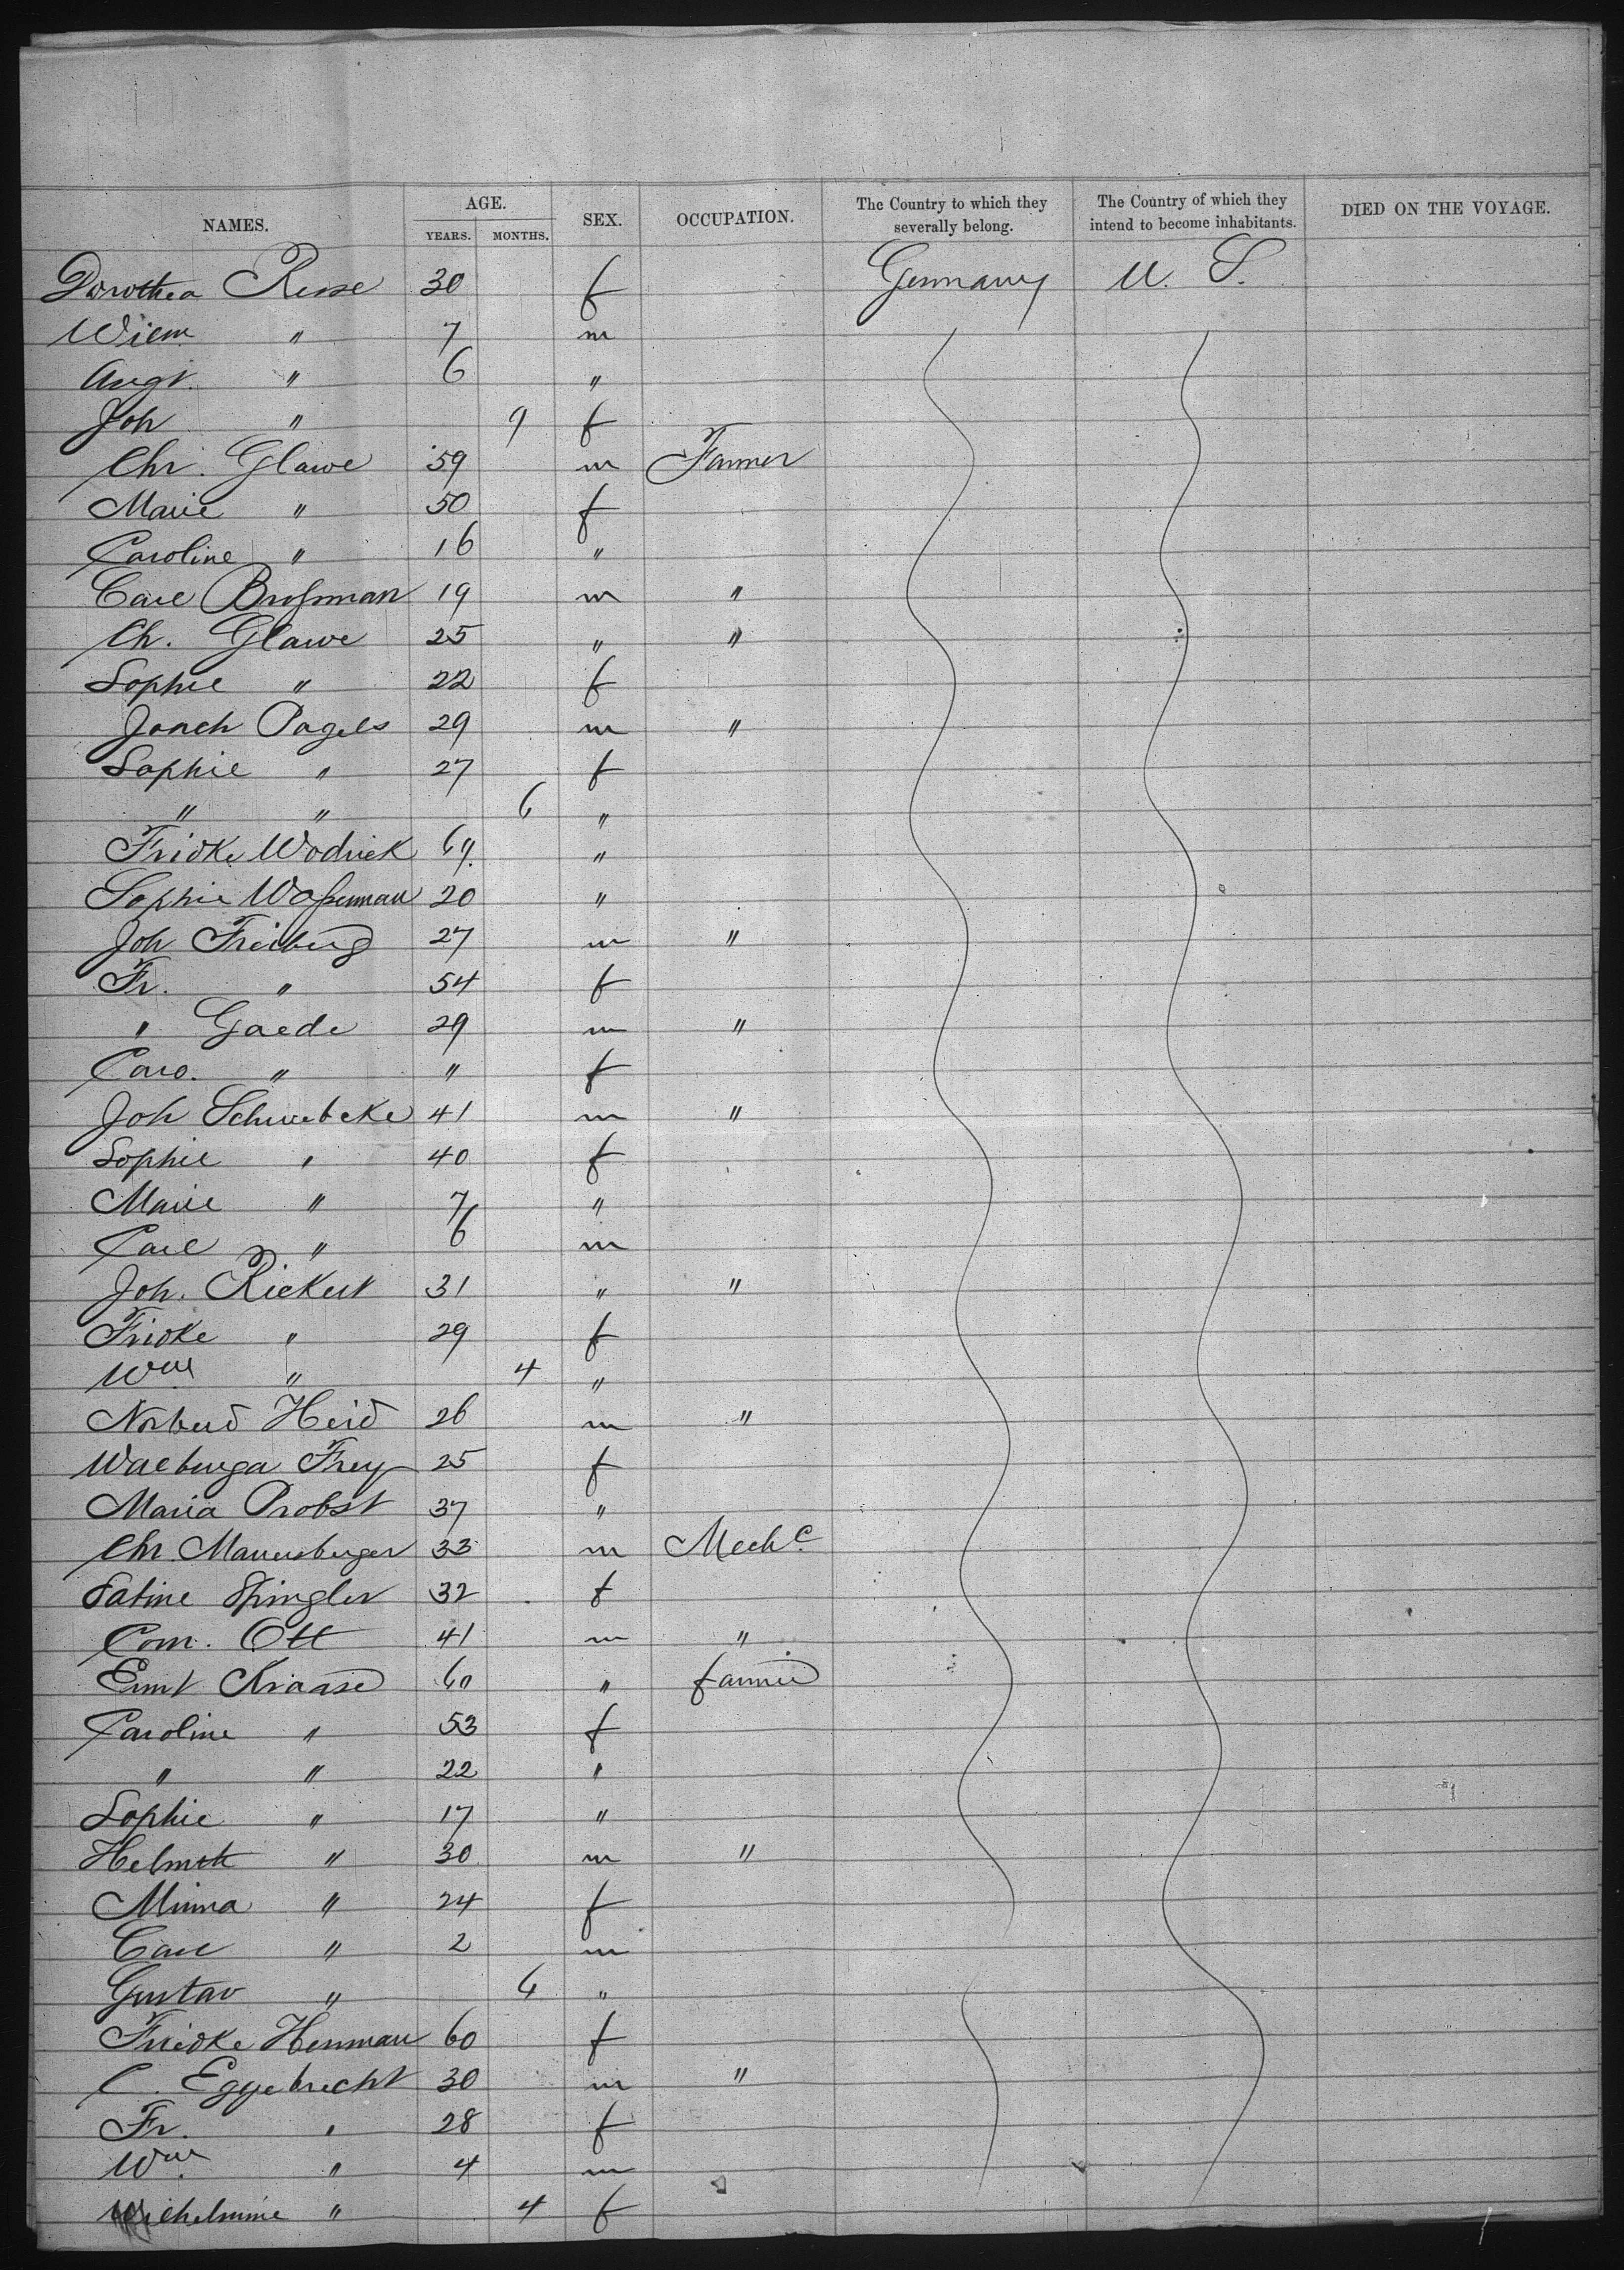 NAMES. AGE. SEX. OCCUPATION. The Country to which they severally belong. The Country of which they intend to become inhabitants. DIED ON THE VOYAGE.
YEARS. MONTHS.
Dorothea 30 f Germany U. S.
Wilm " 7 m
Augt. " 6 "
Joh " 9 f
Chr. Glawe 59 m Farmer
Marie " 50 f
Caroline " 16 "
Carl Broßman 19 m "
Ch. Glawe 25 " "
Sophie " 22 f
Joach Pagels 29 m "
Sophie " 27 f
" " 6 "
Fridke Wodrick "
Sophie Waßerman 20 "
Joh Freiberg 27 m "
Fr. " 54 f
" Gaede 29 m "
Caro. " " f
Joh Schwebcke 41 m "
Sophie " 40 f
Marie " 7 "
Carl " 6 m
Joh. Rickert 31 " "
Fridke " 29 f
Wm " 4 "
Norberd Heid 26 m "
Walburga Frey 25 f
Maria Probst 37 "
Chr. Mauersberger 33 m Mechc
Sabine Spingler 32 f
Corn. Ott 41 m "
Ernst Kraase 60 " farmer
Caroline " 53 f
" " 22 "
Sophie " 17 "
Helmth " 30 m "
Minna " 24 f
Carl " 2 m
Gustav " 6 "
Friedke Herman 60 f
C. Eggebrecht 30 m "
Fr. " 28 f
Wm. " 4 m
Wilhelmine " 4 f